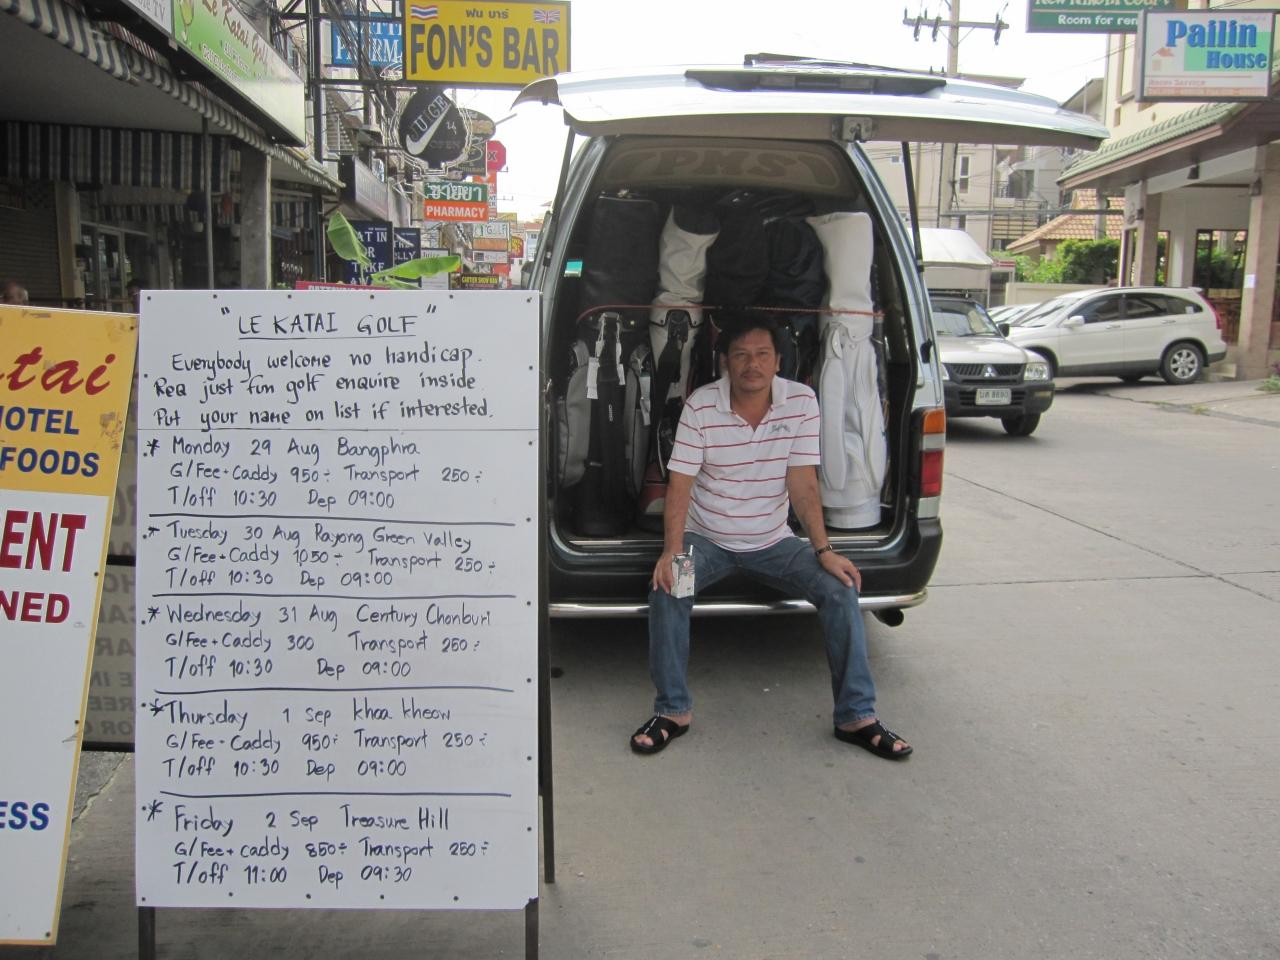 Le Katai Golf
ฟน บาร์
FON'S BAR
OPEN
ขายยา
PHARMACY
EAT IN
OR
TAKE
Room for rent
Pailin
House
PKS
"LE KATAI GOLF"
Everybody welcome no handicap.
Req just fun golf enquire inside
Put your name on list if interested.
* Monday 29 Aug Bangphra
G/Fee+Caddy 950÷ Transport 250÷
T/off 10:30 Dep 09:00
* Tuesday 30 Aug Rayong Green Valley
G/Fee+Caddy 1050÷ Transport 250÷
T/off 10:30 Dep 09:00
* Wednesday 31 Aug Century Chonburi
G/Fee+Caddy 300 Transport 250÷
T/off 10:30 Dep 09:00
* Thursday 1 Sep khoa kheow
G/Fee-Caddy 950÷ Transport 250÷
T/off 10:30 Dep 09:00
* Friday 2 Sep Treasure Hill
G/Fee+caddy 850÷ Transport 250÷
T/off 11:00 Dep 09:30
tai
OTEL
FOODS
ENT
NED
ESS